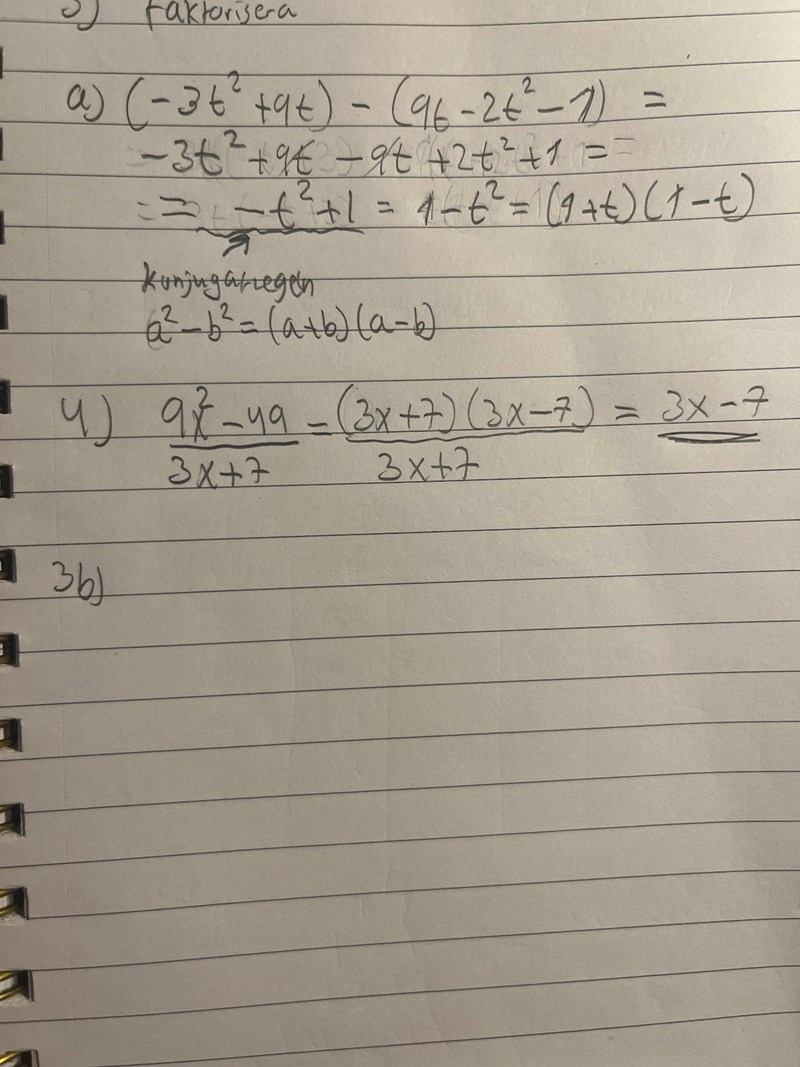 3) Faktorisera
a) (-3t² +9t) - (9t -2t² -1) =
-3t² +9t -9t +2t² +1 =
= -t² +1 = 1-t² = (1+t)(1-t)
konjugatregeln
a² - b² = (a+b)(a-b)
4) 9x² -49 = (3x+7)(3x-7) = 3x-7
3x+7 3x+7
3b)